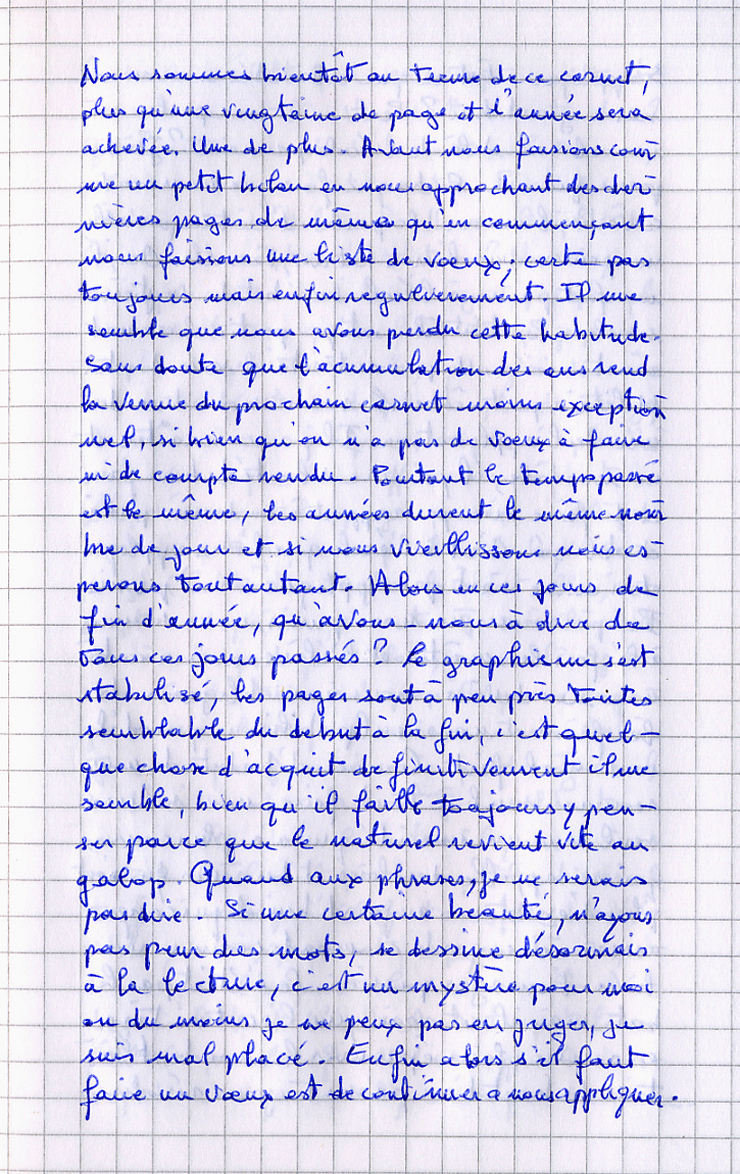 Nous sommes bientôt au terme de ce carnet,
plus qu'une vingtaine de page et l'année sera
achevée. Une de plus. Avant nous faisions com
me un petit bilan en nous approchant des der
nières pages, de même qu'en commençant
nous faisions une liste de vœux ; certe pas
toujours mais enfin regulverement. Il me
semble que nous avons perdu cette habitude.
Sans doute que l'acumulation des ans rend
la venue du prochain carnet moins exception
nel, si bien qu'on n'a pas de voeux à faire
ni de compte rendu. Pourtant le temps passé
est le même, les années durent le même nom
bre de jour et si nous vieillissons nous es-
perons tout autant. Alors en ces jours de
fin d'année, qu'avons-nous à dire de
tous ces jours passés ? Le graphisme s'est
stabilisé, les pages sont à peu près toutes
semblable du debut à la fin, c'est quel-
que chose d'acquit definitivement il me
semble, bien qu'il faille toujours y pen-
ser parce que le naturel revient vite au
galop. Quand aux phrases, je ne serais
pas dire. Si une certaine beauté, n'ayons
pas peur des mots, se dessine désormais
à la lecture, c'est un mystère pour moi
ou du moins je ne peux pas en juger, je
suis mal placé. Enfin alors s'il faut
faire un vœux est de continuer a nous appliquer.